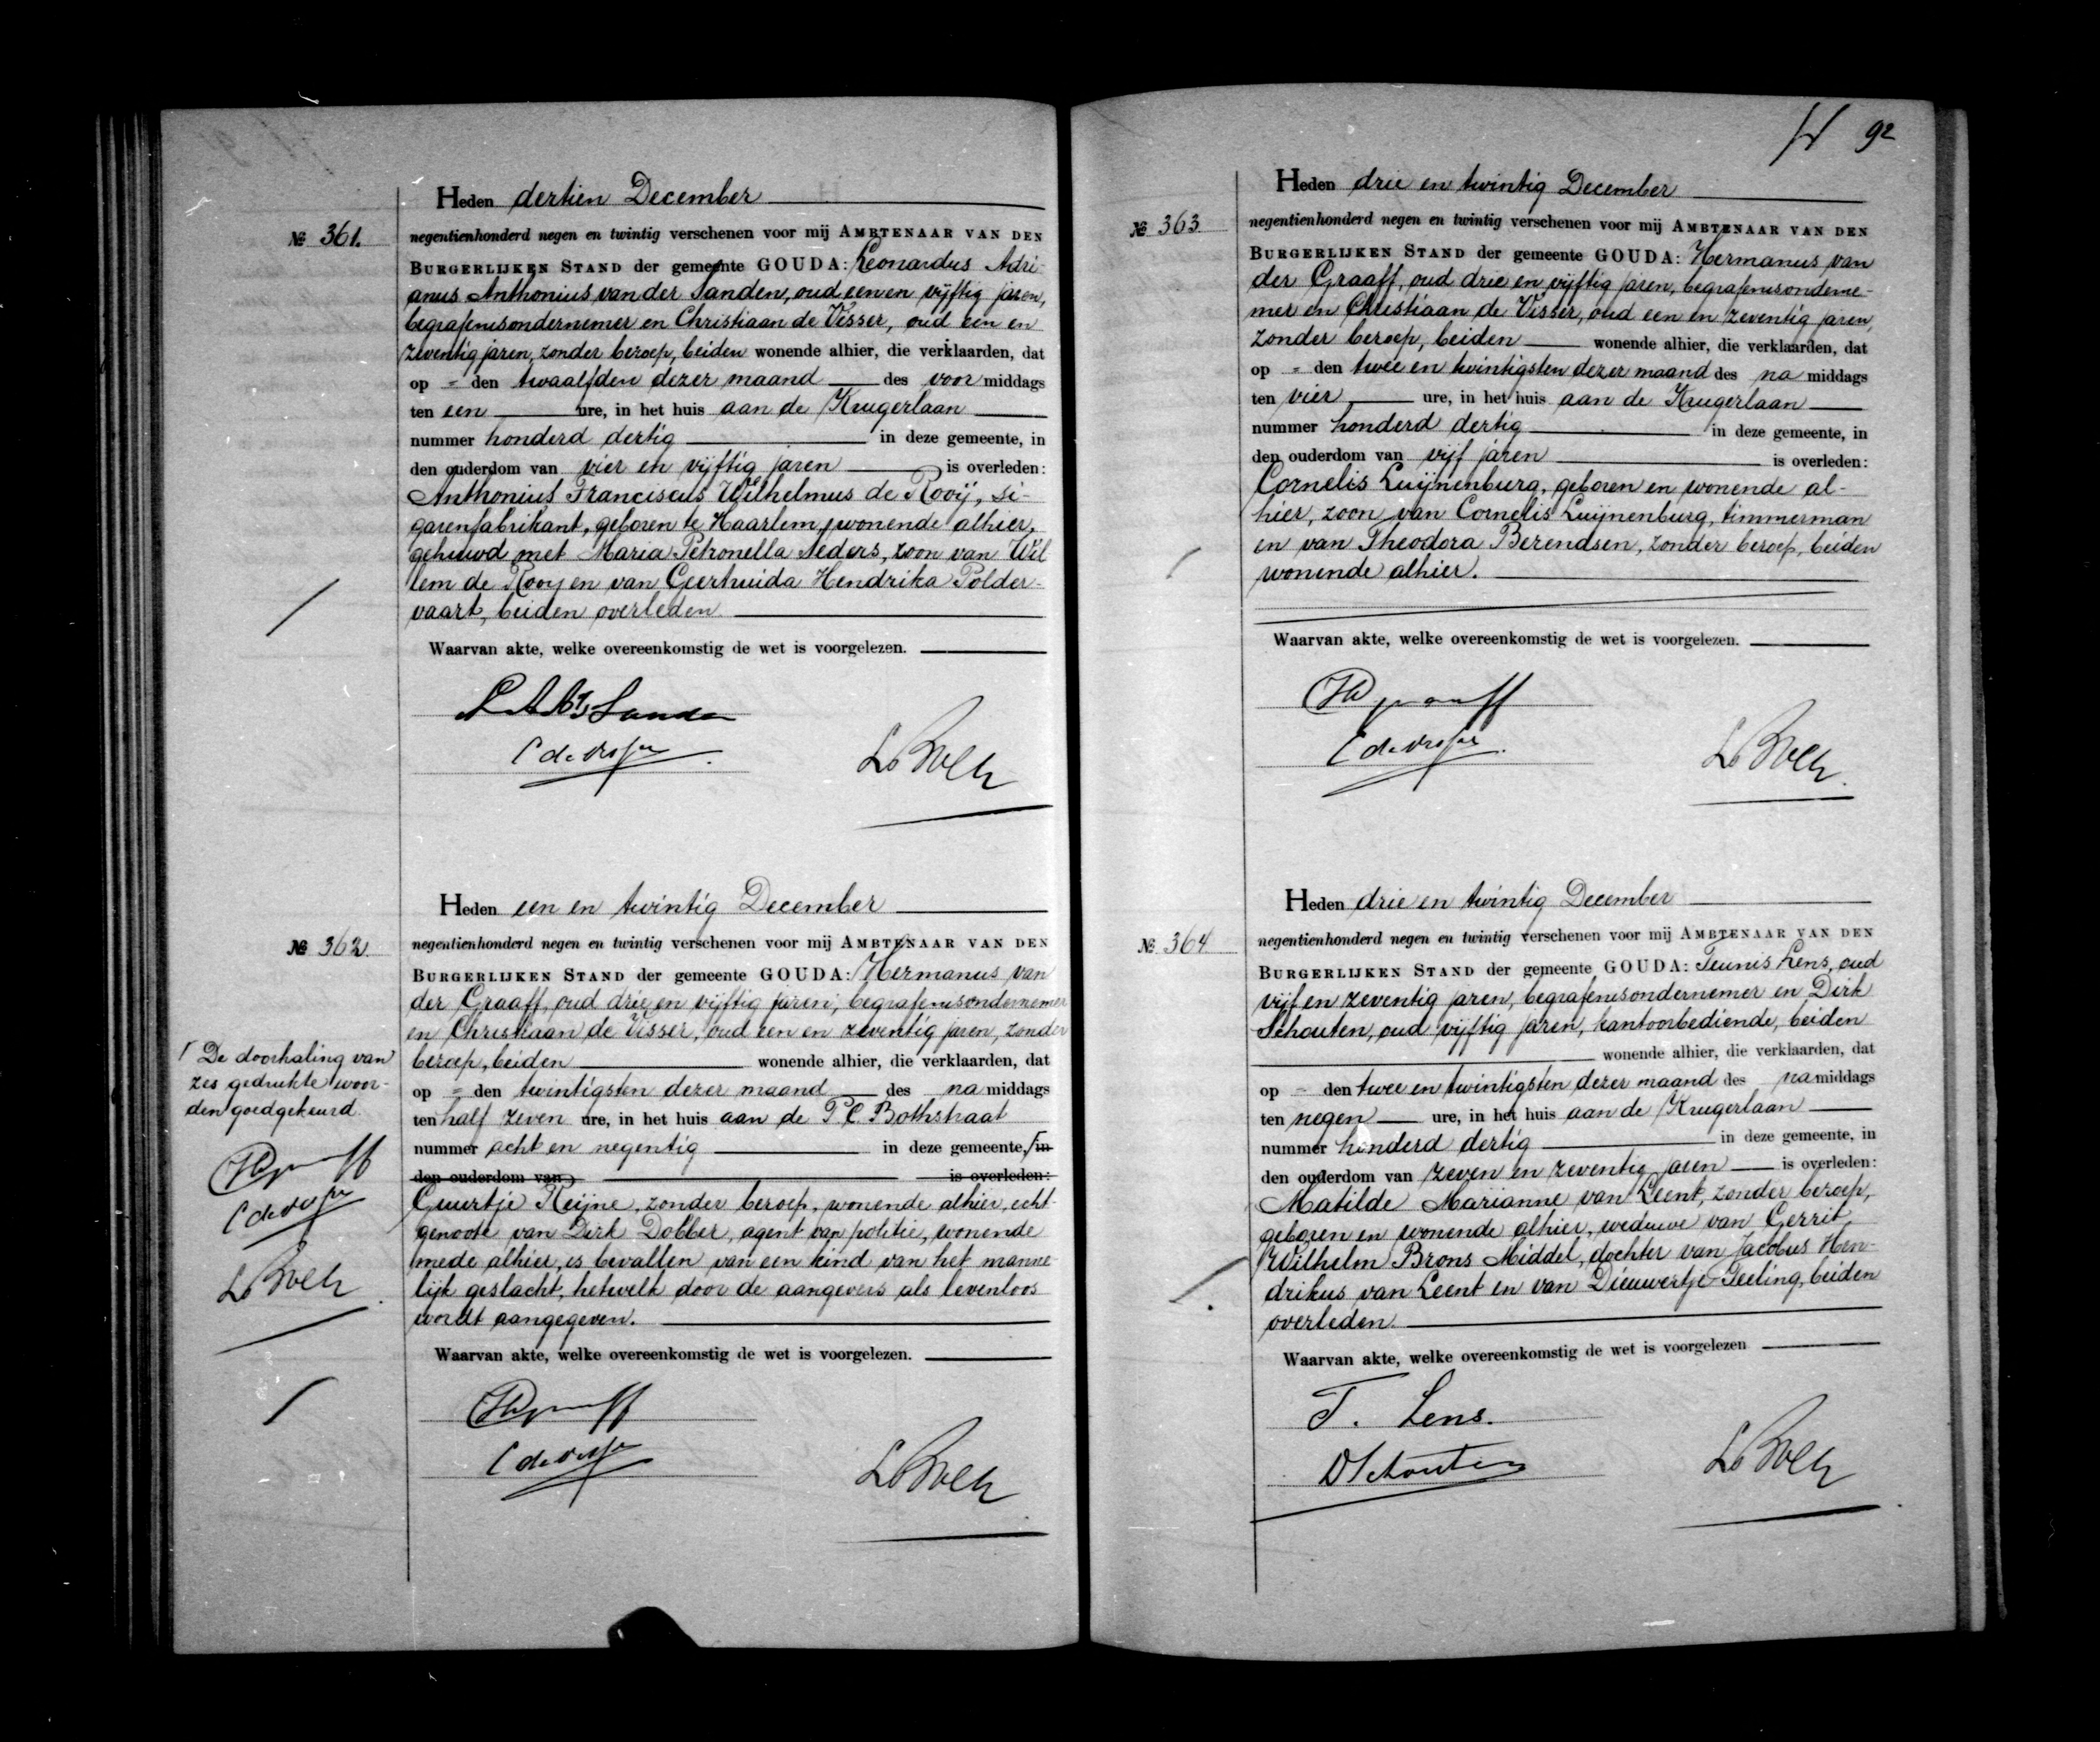 Heden dertien December
№ 361.
negentienhonderd negen en twintig verschenen voor mij AMBTENAAR VAN DEN
BURGERLIJKEN STAND der gemeente GOUDA: Leonardus Adri-
anus Anthonius van der Sanden, oud een en vijftig jaren,
begrafenisondernemer en Christiaan de Visser, oud een en
zeventig jaren, zonder beroep, beiden wonende alhier, die verklaarden, dat
op = den twaalfden dezer maand des voor middags
ten een ure, in het huis aan de Krugerlaan
nummer honderd dertig in deze gemeente, in
den ouderdom van vier en vijftig jaren is overleden:
Anthonius Franciscus Wilhelmus de Rooij, si-
garenfabrikant, geboren te Haarlem, wonende alhier,
gehuwd met Maria Petronella Aeders, zoon van Wil
lem de Rooy en van Geertruida Hendrika Polder-
vaart, beiden overleden.
Waarvan akte, welke overeenkomstig de wet is voorgelezen.
C de Visser
Heden een en twintig December
№ 362.
negentienhonderd negen en twintig verschenen voor mij AMBTENAAR VAN DEN
BURGERLIJKEN STAND der gemeente GOUDA: Hermanus van
der Graaff, oud drie en vijftig jaren, begrafenisondernemer
en Christiaan de Visser, oud een en zeventig jaren, zonder
beroep, beiden wonende alhier, die verklaarden, dat
op = den twintigsten dezer maand des na middags
ten half zeven ure, in het huis aan de P.C. Bothstraat
nummer acht en negentig in deze gemeente, in
den ouderdom van is overleden:
Guurtje Reijne, zonder beroep, wonende alhier, echt-
genoote van Dirk Dobber, agent van politie, wonende
mede alhier, is bevallen van een kind van het manne
lijk geslacht, hetwelk door de aangevers als levenloos
wordt aangegeven.
Waarvan akte, welke overeenkomstig de wet is voorgelezen.
C de Visser
De doorhaling van
zes gedrukte woor-
den goedgekeurd.
C de Visser
92
Heden drie en twintig December
№ 363
negentienhonderd negen en twintig verschenen voor mij AMBTENAAR VAN DEN
BURGERLIJKEN STAND der gemeente GOUDA: Hermanus van
der Graaff, oud drie en vijftig jaren, begrafenisonderne-
mer en Christiaan de Visser, oud een en zeventig jaren,
zonder beroep, beiden wonende alhier, die verklaarden, dat
op = den twee en twintigsten dezer maand des na middags
ten vier ure, in het huis aan de Krugerlaan
nummer honderd dertig in deze gemeente, in
den ouderdom van vijf jaren is overleden:
Cornelis Luijnenburg, geboren en wonende al-
hier, zoon van Cornelis Luijnenburg, timmerman
en van Theodora Berendsen, zonder beroep, beiden
wonende alhier.
Waarvan akte, welke overeenkomstig de wet is voorgelezen.
C de Visser
Heden drie en twintig December
№ 364
negentienhonderd negen en twintig verschenen voor mij AMBTENAAR VAN DEN
BURGERLIJKEN STAND der gemeente GOUDA: Teunis Lens, oud
vijf en zeventig jaren, begrafenisondernemer en Dirk
Schouten, oud vijftig jaren, kantoorbediende, beiden
wonende alhier, die verklaarden, dat
op = den twee en twintigsten dezer maand des na middags
ten negen ure, in het huis aan de Krugerlaan
nummer honderd dertig in deze gemeente, in
den ouderdom van zeven en zeventig jaren is overleden:
Matilde Marianne van Leent, zonder beroep,
geboren en wonende alhier, weduwe van Gerrit
Wilhelm Brons Middel, dochter van Jacobus Hen-
drikus van Leent en van Dieuwertje Teeling, beiden
overleden.
Waarvan akte, welke overeenkomstig de wet is voorgelezen
T. Lens.
D Schouten